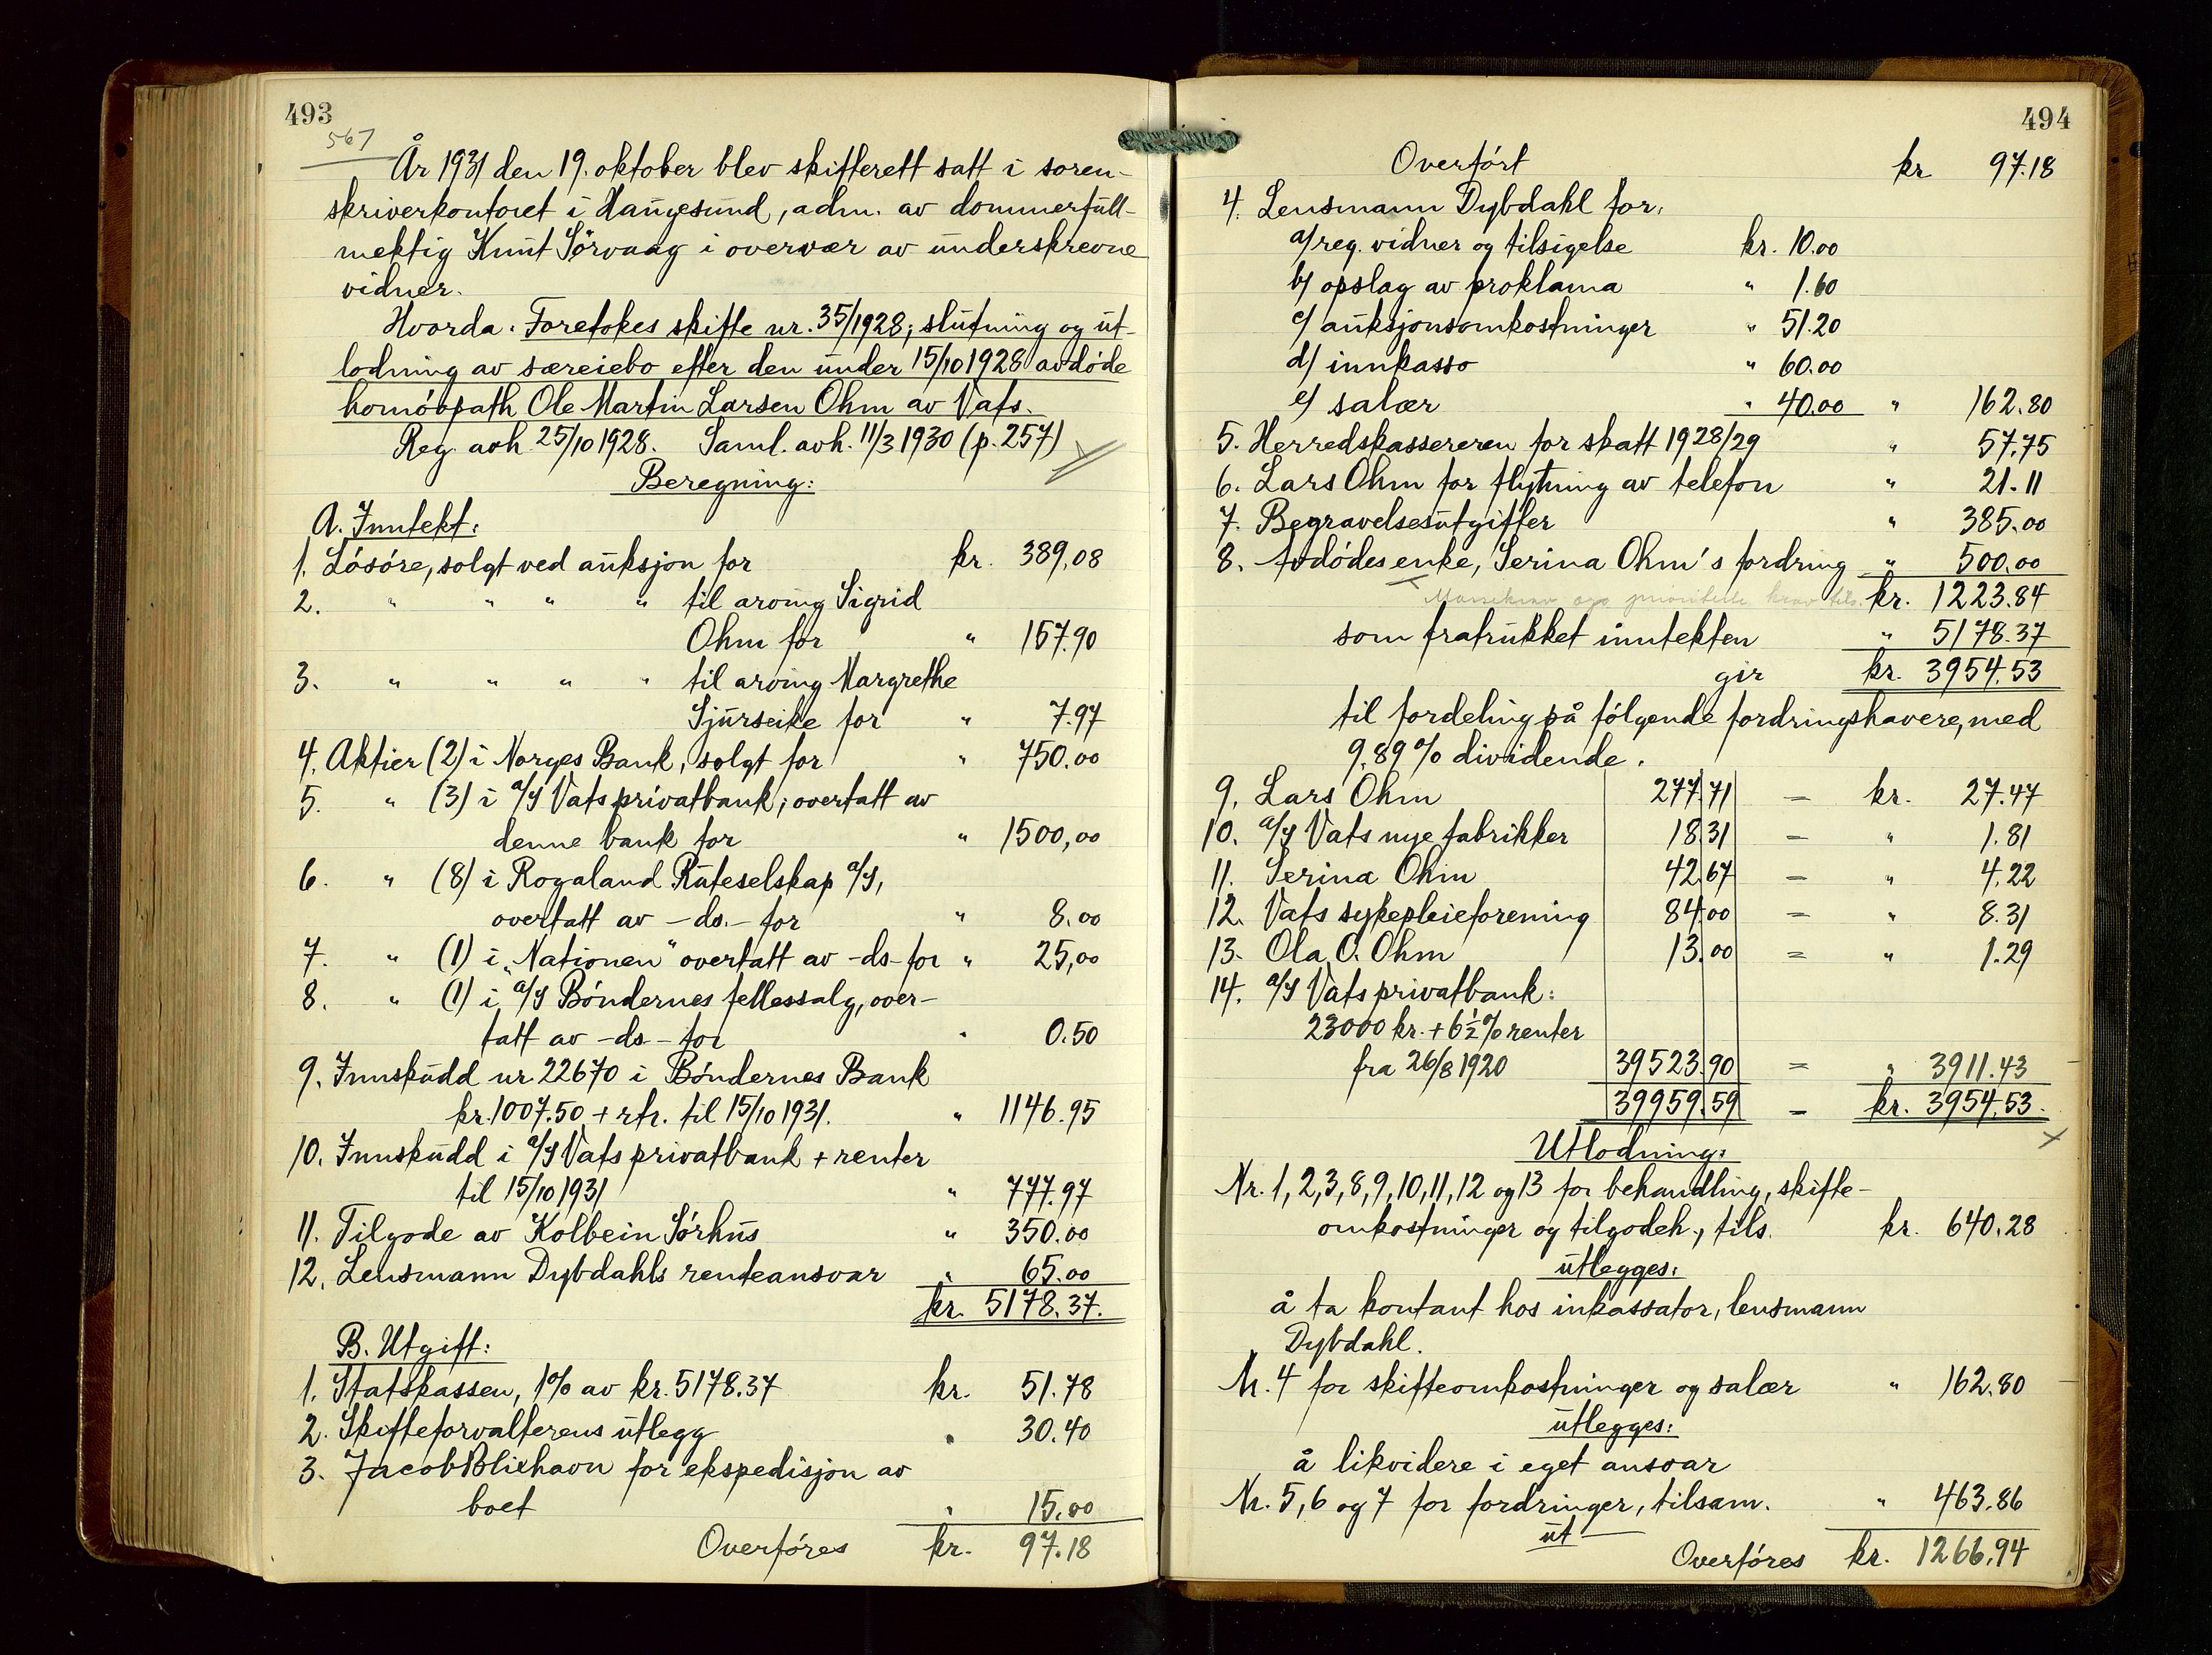 493
567
År 1931 den 19. oktober blev skifterett satt i soren-
skriverkontoret i Haugesund, adm. av dommerfull-
mektig Knut Sørvaag i overvær av underskrevne
vidner.
Hvorda: Foretokes skifte nr. 35/1928; slutning og ut-
lodning av særeiebo efter den under 15/10 1928 avdøde
homöopath Ole Martin Larsen Ohm av Vats.
Reg. avh. 25/10 1928. Saml. avh. 11/3 1930 (p. 257)
Beregning:
A. Inntekt:
1. Løsøre, solgt ved auksjon for kr. 389,08
2. " " " " til arving Sigrid
Ohm for " 157.90
3. " " " " til arving Margrethe
Sjurseike for " 7.97
4. Aktier (2) i Norges Bank, solgt for " 750.00
5. " (3) i a/s Vats privatbank, overtatt av
denne bank for " 1500,00
6. " (8) i Rogaland Ruteselskap a/s,
overtatt av -ds.- for " 8.00
7. " (1) i "Nationen" overtatt av -ds- for " 25,00
8. " (1) i a/s Bøndernes fellessalg, over-
tatt av -ds- for " 0.50
9. Innskudd nr. 22670 i Bøndernes Bank
kr. 1007.50 + rtr. til 15/10 1931. " 1146.95
10. Innskudd i a/s Vats privatbank + renter
til 15/10 1931 " 777.97
11. Tilgode av Kolbein Sørhus " 350.00
12. Lensmann Dybdahls renteansvar " 65.00
kr. 5178.37.
B. Utgift:
1. Statskassen, 1% av kr. 5178.37 kr. 51.78
2. Skifteforvalterens utlegg " 30.40
3. Jacob Blixhavn for ekspedisjon av
boet " 15.00
Overføres kr. 97.18
494
Overført kr 97.18
4. Lensmann Dybdahl for:
a/ reg. vidner og tilsigelse kr. 10.00
b/ opslag av proklama " 1.60
c/ auksjonsomkostninger " 51.20
d/ innkasso " 60.00
e/ salær " 40.00 " 162.80
5. Herredskassereren for skatt 1928/29 " 57.75
6. Lars Ohm for flytning av telefon " 21.11
7. Begravelsesutgifter " 385.00
8. Avdødes enke, Serina Ohm's fordring " 500.00
kr. 1223.84
som fratrukket inntekten " 5178.37
gir kr. 3954.53
til fordeling på følgende fordringshavere, med
9,89% dividende.
9. Lars Ohm 277.71 = kr. 27.47
10. a/s Vats nye fabrikker 18.31 = " 1.81
11. Serina Ohm 42.67 = " 4.22
12. Vats sykepleieforening 84.00 = " 8.31
13. Ola O. Ohm 13.00 = " 1.29
14. a/s Vats privatbank:
23000 kr. + 6½% renter
fra 26/8 1920 39523.90 = " 3911.43
39959.59 = kr. 3954.53.
Utlodning:
Nr. 1, 2, 3, 8, 9, 10, 11, 12 og 13 for behandling, skifte-
omkostninger og tilgodeh., tils. kr. 640.28
utlegges:
å ta kontant hos inkassator, lensmann
Dybdahl.
Nr. 4 for skifteomkostninger og salær " 162.80
utlegges:
å likvidere i eget ansvar
Nr. 5, 6 og 7 for fordringer, tilsam. " 463.86
ut-
Overføres kr. 1266.94